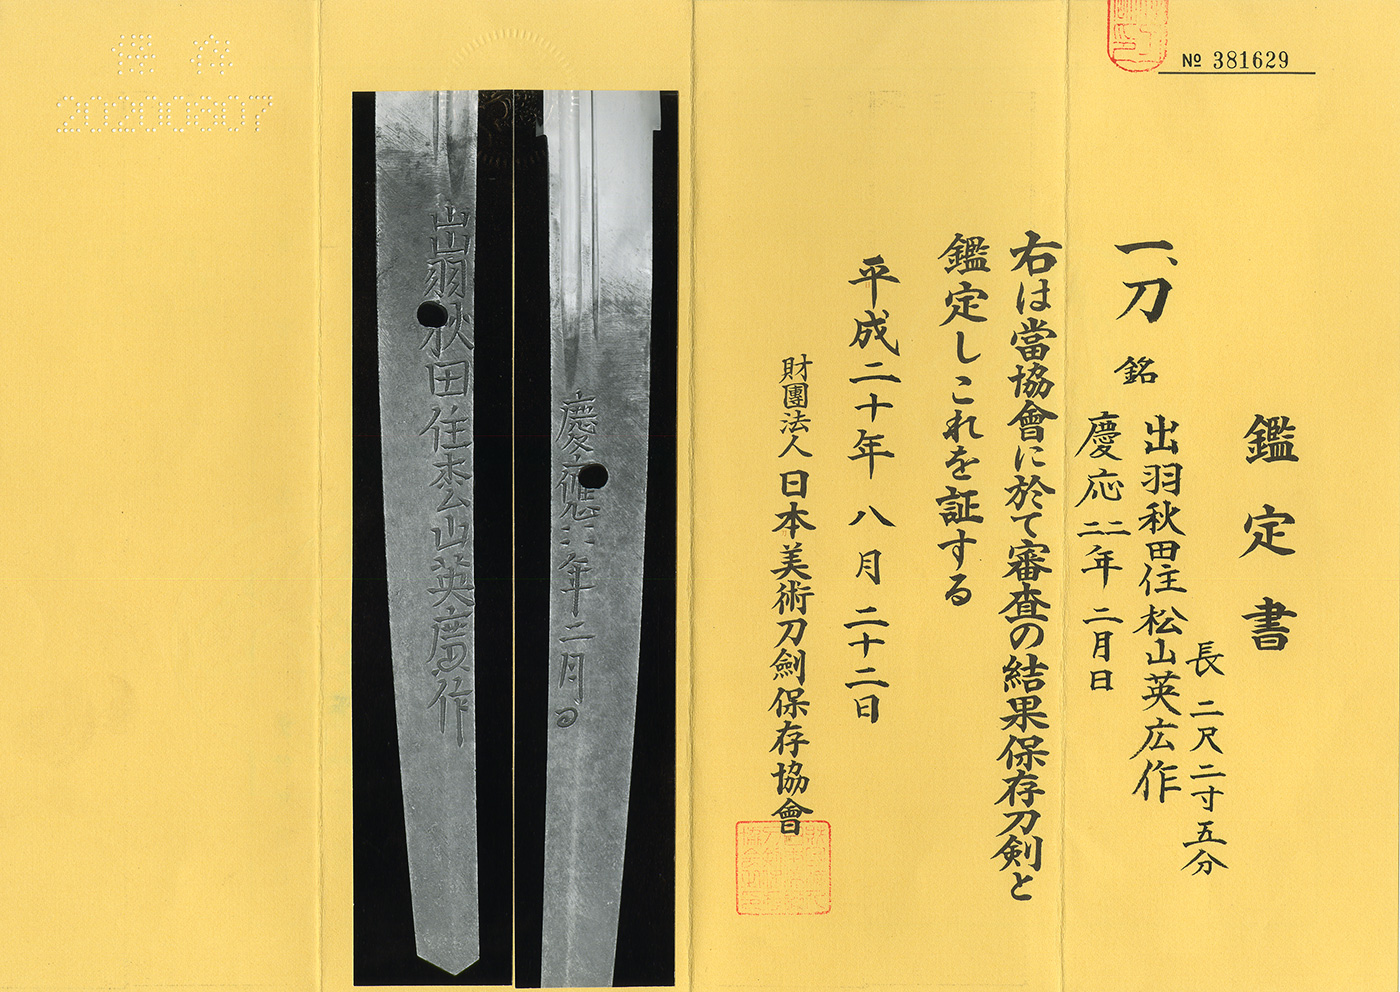 № 381629
鑑定書
長 二尺二寸五分
一、刀 銘 出羽秋田住松山英広作
慶応二二年二月日
右は當協會に於て審査の結果保存刀剣と
鑑定しこれを証する
平成二十年八月二十二日
財團法人日本美術刀劍保存協會
慶應二二年二月日
出羽秋田住枩山英廣作
保存
20200607